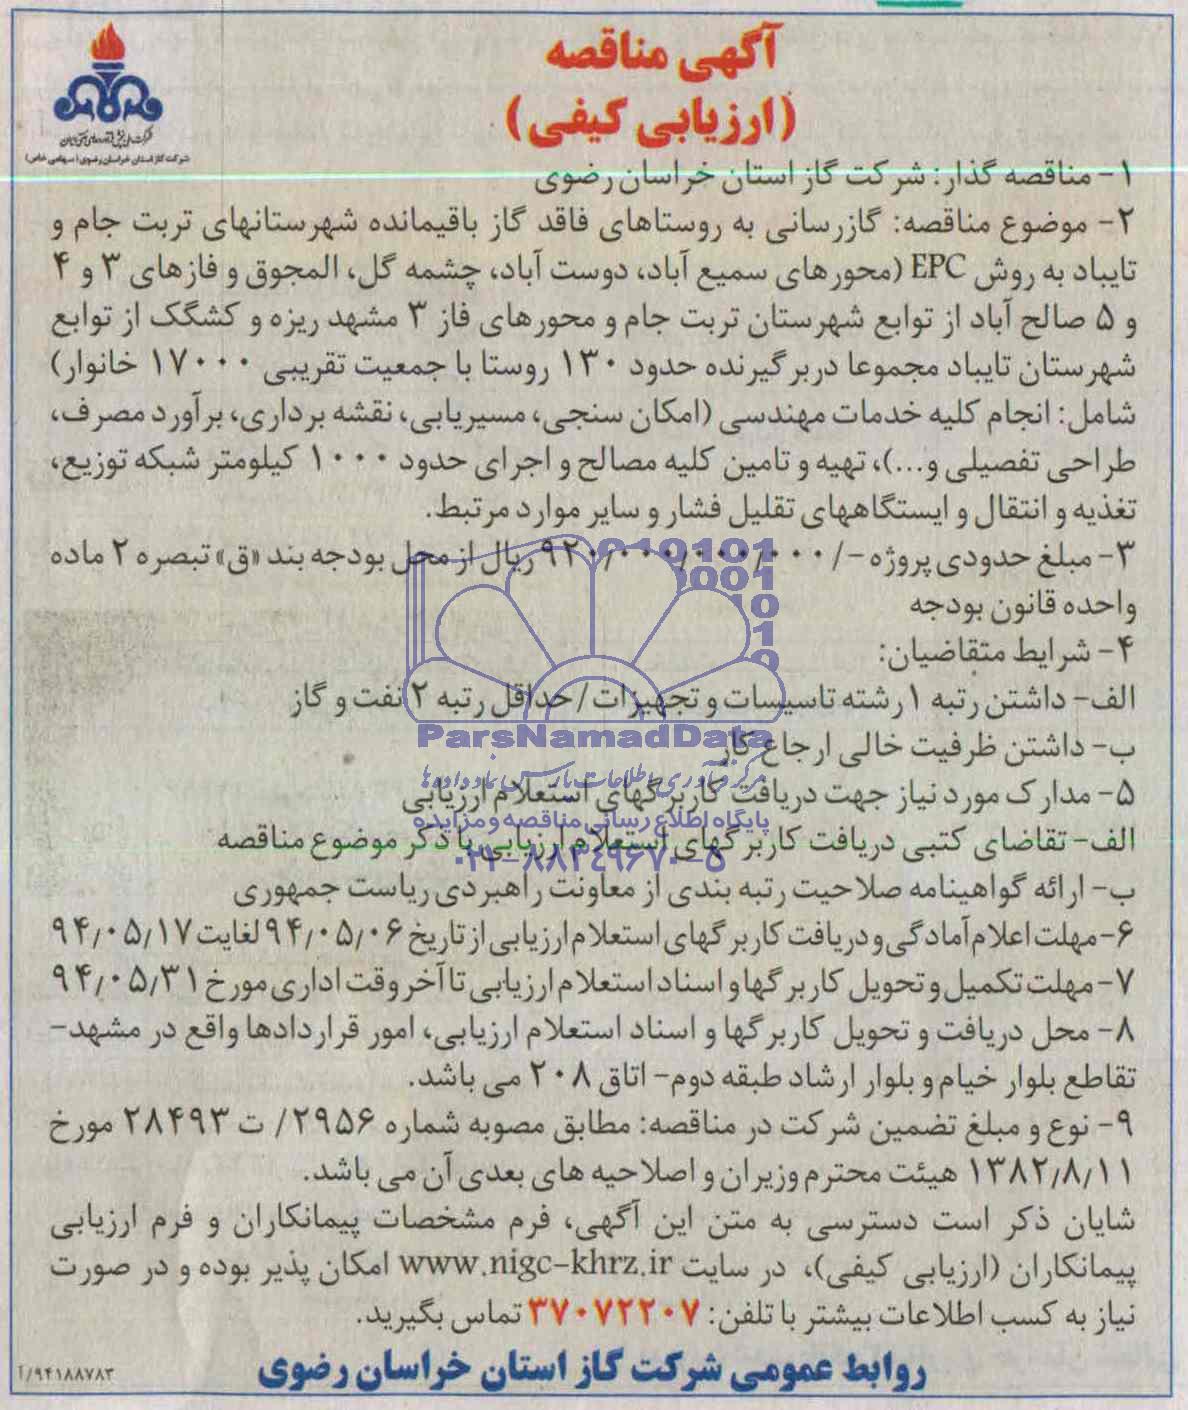 آگهی مناقصه
(ارزیابی کیفی)
شرکت گاز استان خراسان رضوی (سهامی خاص)
۱- مناقصه گذار: شرکت گاز استان خراسان رضوی
۲- موضوع مناقصه: گازرسانی به روستاهای فاقد گاز باقیمانده شهرستانهای تربت جام و
تایباد به روش EPC (محورهای سمیع آباد، دوست آباد، چشمه گل، المجوق و فازهای ۳ و ۴
و ۵ صالح آباد از توابع شهرستان تربت جام و محورهای فاز ۳ مشهد ریزه و کشگک از توابع
شهرستان تایباد مجموعا دربرگیرنده حدود ۱۳۰ روستا با جمعیت تقریبی ۱۷۰۰۰ خانوار)
شامل: انجام کلیه خدمات مهندسی (امکان سنجی، مسیریابی، نقشه برداری، برآورد مصرف،
طراحی تفصیلی و...)، تهیه و تامین کلیه مصالح و اجرای حدود ۱۰۰۰ کیلومتر شبکه توزیع،
تغذیه و انتقال و ایستگاههای تقلیل فشار و سایر موارد مرتبط.
۳- مبلغ حدودی پروژه -/۹۲۰/۰۰۰/۰۰۰/۰۰۰ ریال از محل بودجه بند «ق» تبصره ۲ ماده
واحده قانون بودجه
۴- شرایط متقاضیان:
الف- داشتن رتبه ۱ رشته تاسیسات و تجهیزات / حداقل رتبه ۲ نفت و گاز
ب- داشتن ظرفیت خالی ارجاع کار
ParsNamadData
مرکز فرآوری اطلاعات پارس نماد داده ها
۵- مدارک مورد نیاز جهت دریافت کاربرگهای استعلام ارزیابی
پایگاه اطلاع رسانی مناقصه و مزایده
الف- تقاضای کتبی دریافت کاربرگهای استعلام ارزیابی با ذکر موضوع مناقصه
۰۲۱-۸۸۳۴۹۶۷۰-۵
ب- ارائه گواهینامه صلاحیت رتبه بندی از معاونت راهبردی ریاست جمهوری
۶- مهلت اعلام آمادگی و دریافت کاربرگهای استعلام ارزیابی از تاریخ ۹۴/۰۵/۰۶ لغایت ۹۴/۰۵/۱۷
۷- مهلت تکمیل و تحویل کاربرگها و اسناد استعلام ارزیابی تا آخر وقت اداری مورخ ۹۴/۰۵/۳۱
۸- محل دریافت و تحویل کاربرگها و اسناد استعلام ارزیابی، امور قراردادها واقع در مشهد-
تقاطع بلوار خیام و بلوار ارشاد طبقه دوم- اتاق ۲۰۸ می باشد.
۹- نوع و مبلغ تضمین شرکت در مناقصه: مطابق مصوبه شماره ۲۹۵۶/ ت ۲۸۴۹۳ مورخ
۱۳۸۲/۸/۱۱ هیئت محترم وزیران و اصلاحیه های بعدی آن می باشد.
شایان ذکر است دسترسی به متن این آگهی، فرم مشخصات پیمانکاران و فرم ارزیابی
پیمانکاران (ارزیابی کیفی)، در سایت www.nigc-khrz.ir امکان پذیر بوده و در صورت
نیاز به کسب اطلاعات بیشتر با تلفن: ۳۷۰۷۲۲۰۷ تماس بگیرید.
روابط عمومی شرکت گاز استان خراسان رضوی
۹۴۱۸۸۷۸۳/آ